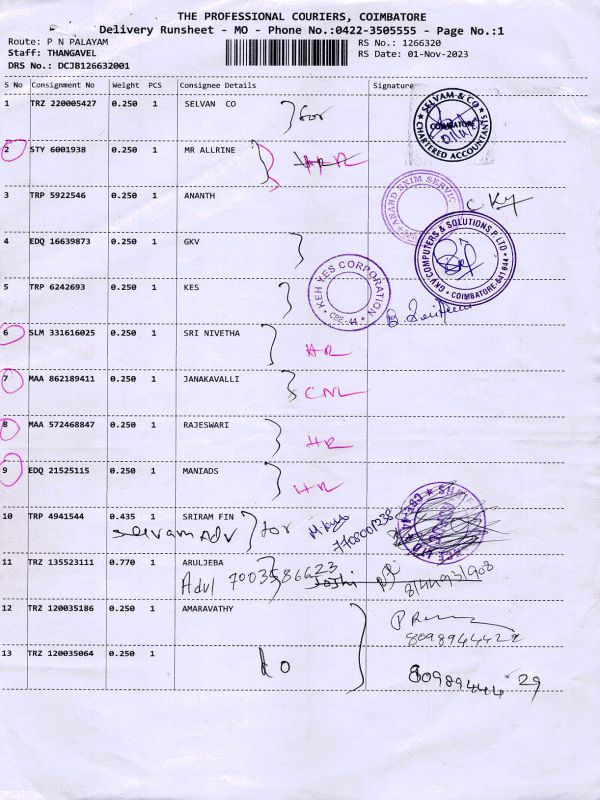 THE PROFESSIONAL COURIERS, COIMBATORE
Delivery Runsheet - MO - Phone No.:0422-3505555 - Page No.:1
Route: P N PALAYAM RS No.: 1266320
Staff: THANGAVEL RS Date: 01-Nov-2023
DRS No.: DCJB126632001
S No Consignment No Weight PCS Consignee Details Signature
1 TRZ 220005427 0.250 1 SELVAN CO for
SELVAM & CO COIMBATORE CHARTERED ACCOUNTANTS
2 STY 6001938 0.250 1 MR ALLRINE
3 TRP 5922546 0.250 1 ANANTH
ANAND EXIM SERVIC
4 EDQ 16639873 0.250 1 GKV
GKV COMPUTERS & SOLUTIONS P.LTD COIMBATORE-641 044
5 TRP 6242693 0.250 1 KES
KEH YES CORPORATION CBE-44
6 SLM 331616025 0.250 1 SRI NIVETHA HR
7 MAA 862189411 0.250 1 JANAKAVALLI CNL
8 MAA 572468847 0.250 1 RAJESWARI HR
9 EDQ 21525115 0.250 1 MANIADS HR
10 TRP 4941544 0.435 1 SRIRAM FIN
selvam Adv for 7708001238
11 TRZ 135523111 0.770 1 ARULJEBA
Adul
12 TRZ 120035186 0.250 1 AMARAVATHY
8098944429
13 TRZ 120035064 0.250 1
8098944429